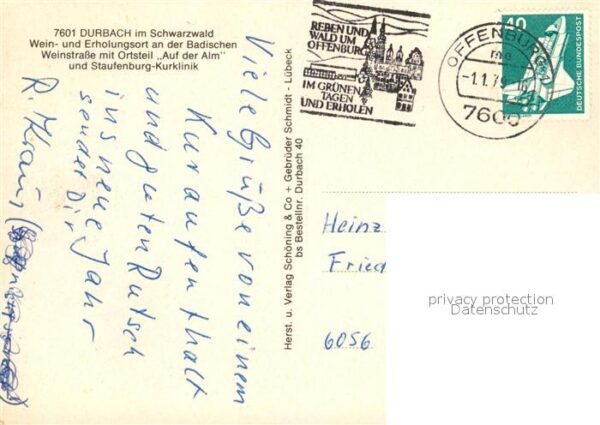 7601 DURBACH im Schwarzwald
Wein- und Erholungsort an der Badischen
Weinstraße mit Ortsteil „Auf der Alm"
und Staufenburg-Kurklinik
Viele Grüße von einem
Kuraufenthalt
und guten Rutsch
ins neue Jahr
sendet Dir
R. Kraus
Herst. u. Verlag Schöning & Co + Gebrüder Schmidt - Lübeck
bs Bestellnr. Durbach 40
REBEN UND
WALD UM
OFFENBURG
IM GRÜNEN
TAGEN
UND ERHOLEN
OFFENBURG 1
-1.1.79
7600
40
DEUTSCHE BUNDESPOST
Heinz
Fried
6056
privacy protection
Datenschutz